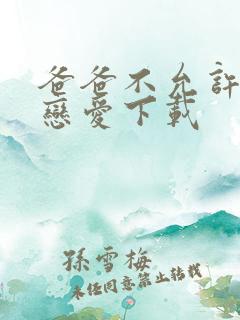 爸爸不允許
戀愛下載
孫雪梅
未经同意禁止转载